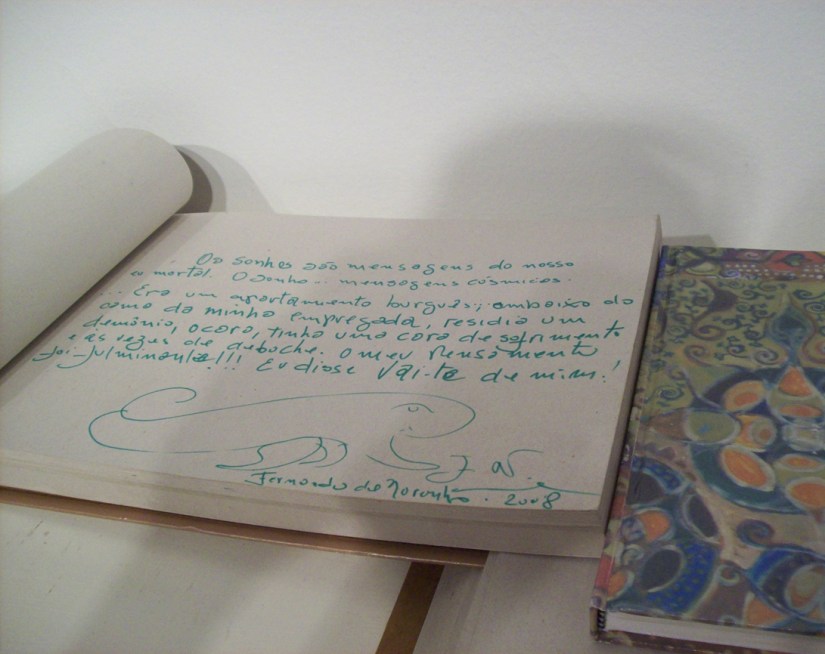 Os sonhos são mensagens do nosso
eu mortal. O sonho - mensagens cósmicas.
... Era um apartamento burguês; embaixo da
cama da minha empregada, residia um
demônio, o cara, tinha uma cara de sofrimento
e as vezes de deboche. O meu pensamento
foi fulminante!!! Eu disse Vai-te de mim!
Fernando de Noronha. 2008